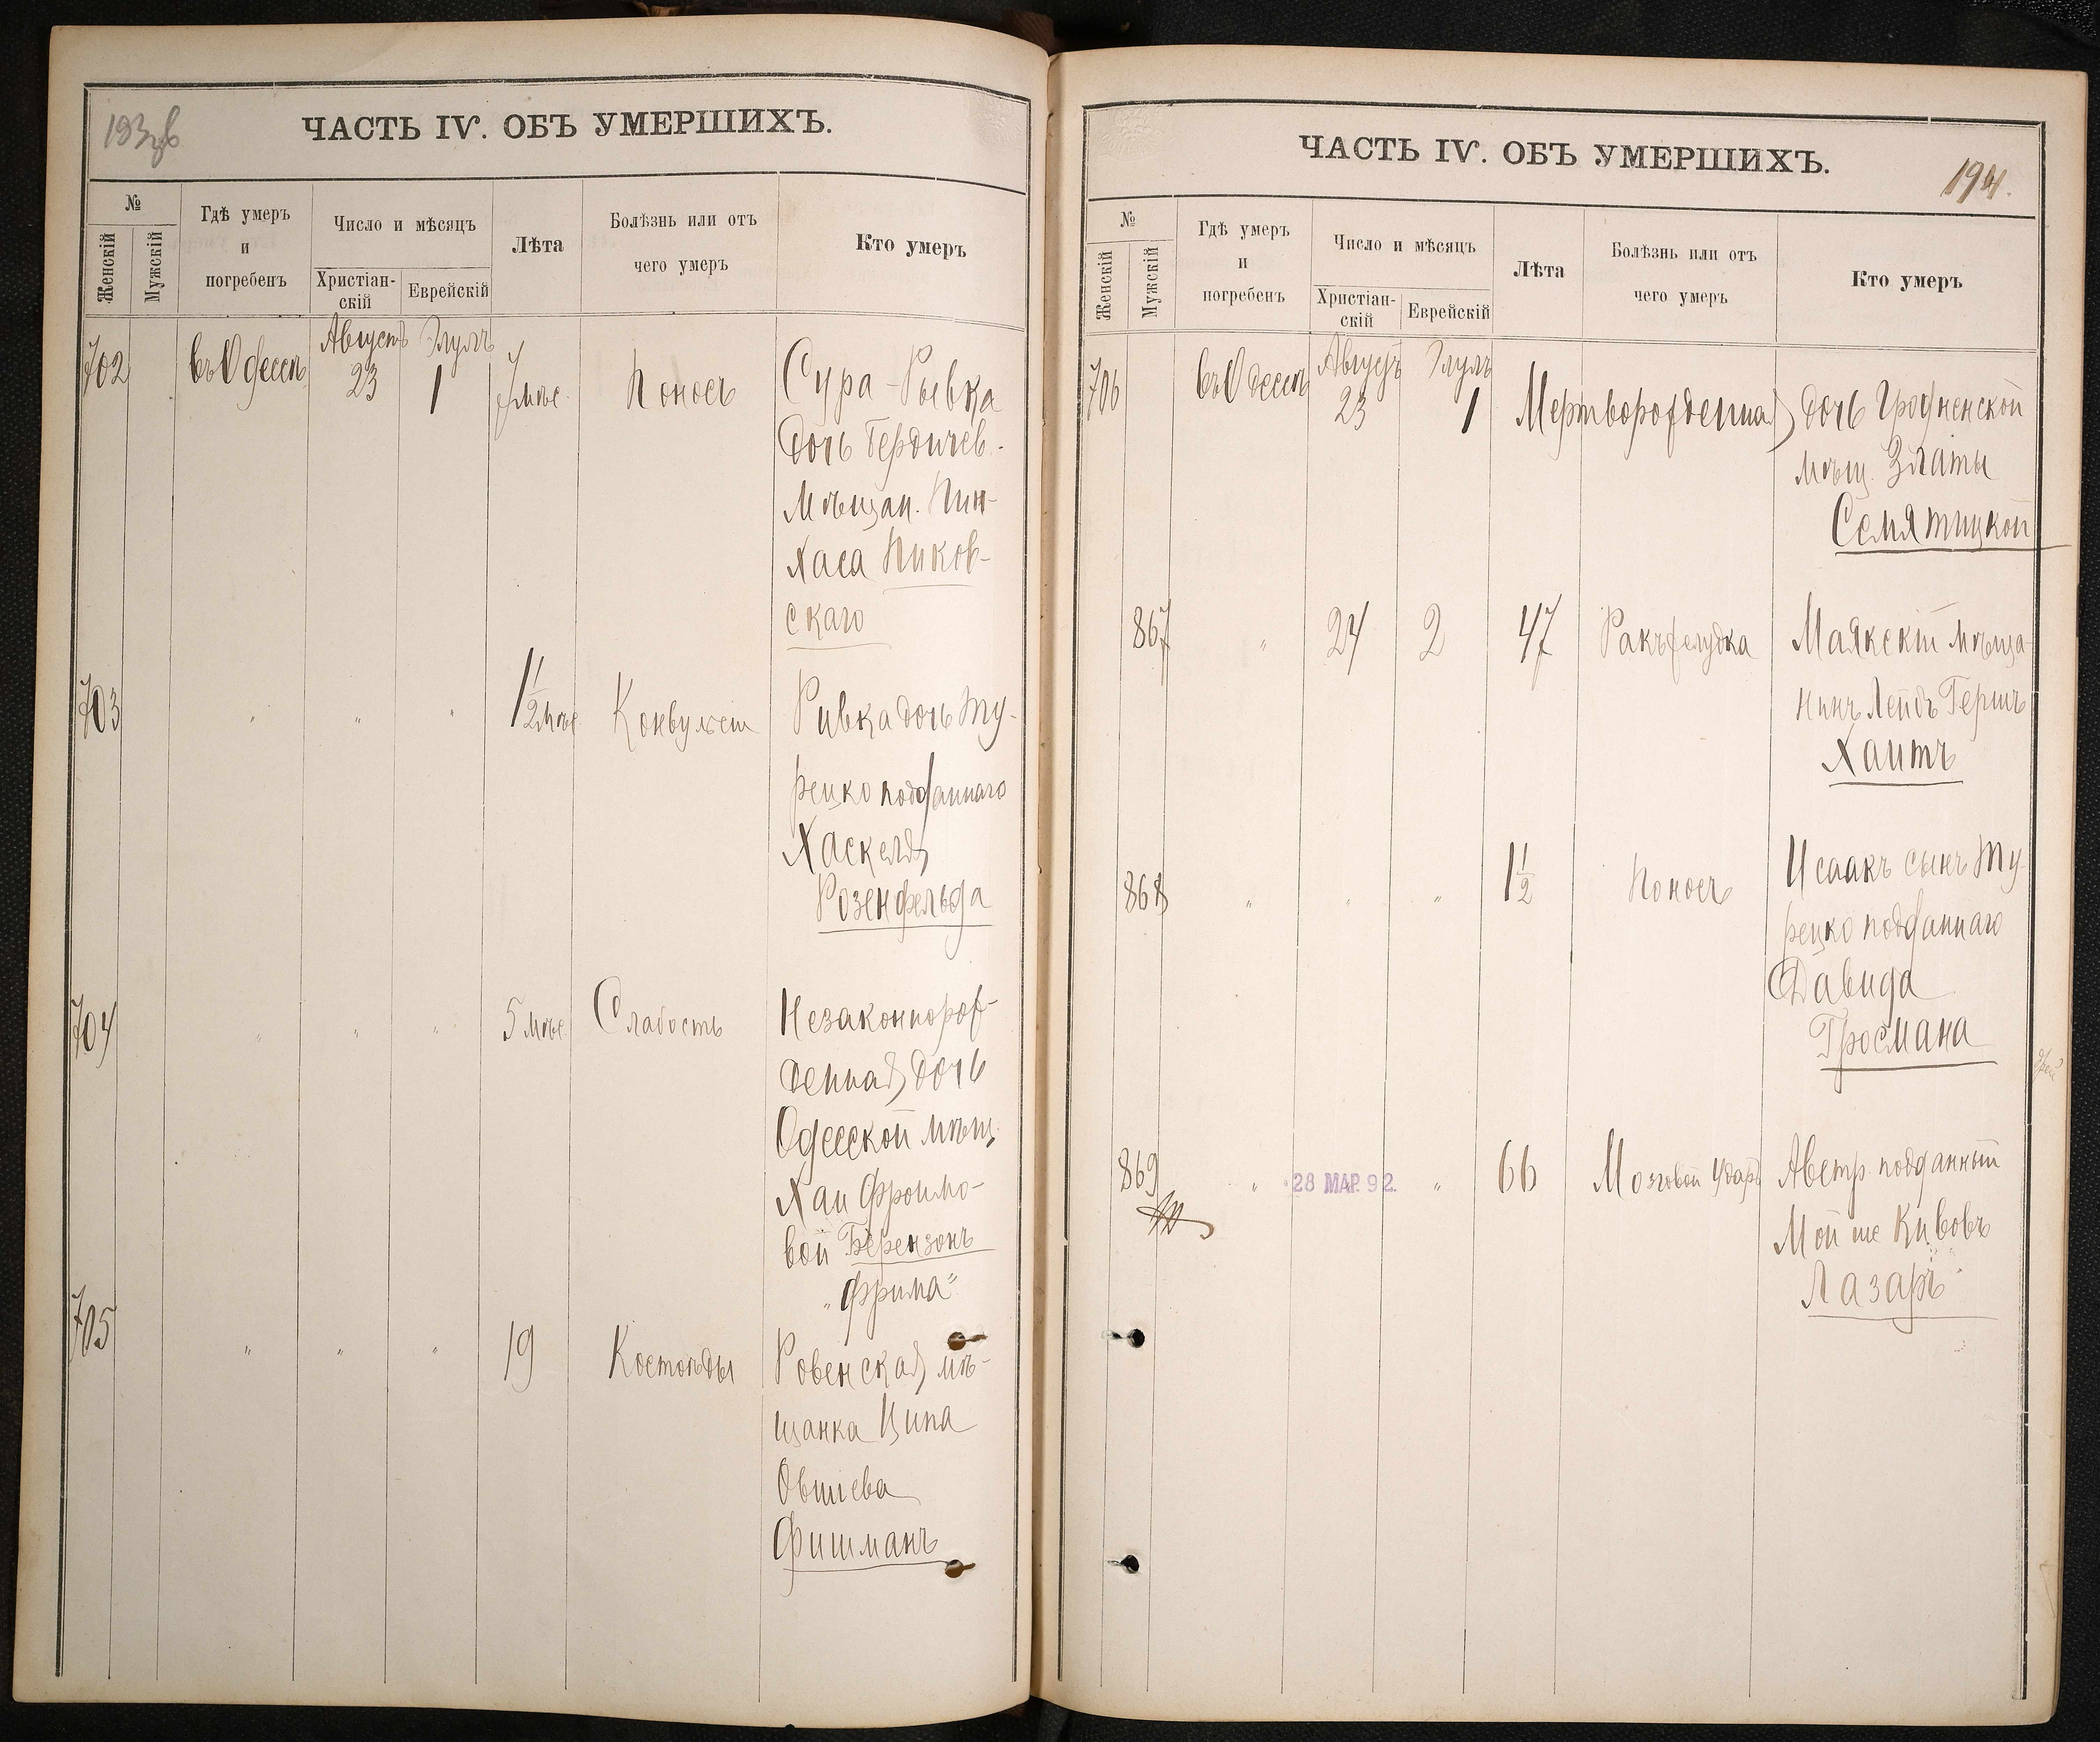 193 об
ЧАСТЬ IV. ОБЪ УМЕРШИХЪ.
№
Женскій
Мужскій
Гдѣ умеръ
и
погребенъ
Число и мѣсяцъ
Христіан-
скій
Еврейскій
Лѣта
Болѣзнь или отъ
чего умеръ
Кто умеръ
Августъ Элулъ
702 въ Одессѣ 23 1 7 мѣс. Поносъ Сура-Рывка
дочь Бердичев.
Мѣщан. Пин-
хаса Пиков-
скаго
703 " " " 1 1/2 мѣс. Конвульсіи Ривка дочь ту-
рецко подданнаго
Хаскеля
Розенфельда
704 " " " 5 мѣс. Слабость Незаконнорож-
денная дочь
Одесской мѣщ.
Хаи Фроимо-
вой Берензонъ
"Фрима"
705 " " " 19 Костоѣды Ровенская мѣ-
щанка Ципа
Овшіева
Фишманъ
ЧАСТЬ IV. ОБЪ УМЕРШИХЪ.
194.
№
Женскій
Мужскій
Гдѣ умеръ
и
погребенъ
Число и мѣсяцъ
Христіан-
скій
Еврейскій
Лѣта
Болѣзнь или отъ
чего умеръ
Кто умеръ
Августъ Элулъ
706 въ Одессѣ 23 1 Мертворожденная дочь Гродненской
мѣщ. Златы
Семятицкой
867 " 24 2 47 Ракъ желудка Маякскій мѣща-
нинъ Лейбъ Гершъ
Хаитъ
868 " " " 1 1/2 Поносъ Исаакъ сынъ ту-
рецко подданнаго
Давида
Гросмана
869 " 28 МАР. 92. " 66 Мозговой ударъ Австр. подданный
Мойше Кивовъ
Лазаръ